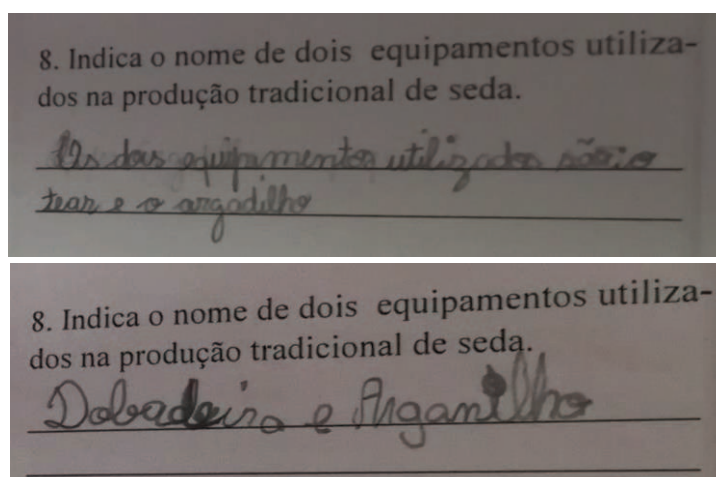 8. Indica o nome de dois equipamentos utiliza-
dos na produção tradicional de seda.
Os dois equipamentos utilizados são: o
tear e o argadilho
8. Indica o nome de dois equipamentos utiliza-
dos na produção tradicional de seda.
Dobadeira e Arganilho